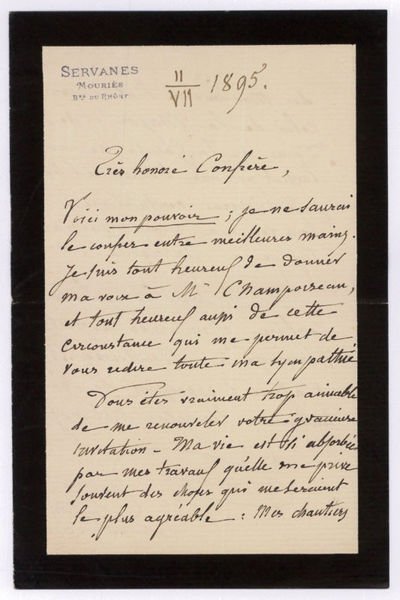 SERVANES
MOURIÈS
Bes DU RHÔNE
11
VII
1895.
Très honoré Confrère,
Voici mon pouvoir ; je ne saurai
le confier entre meilleures mains.
Je suis tout heureux de donner
ma voix à Mr Champoiseau,
et tout heureux aussi de cette
circonstance qui me permet de
vous redire toute ma sympathie
Vous êtes vraiment trop aimable
de me renouveler votre gracieuse
invitation - Ma vie est si absorbée
par mes travaux qu'elle me prive
souvent des choses qui me seraient
le plus agréable : Mes chantiers